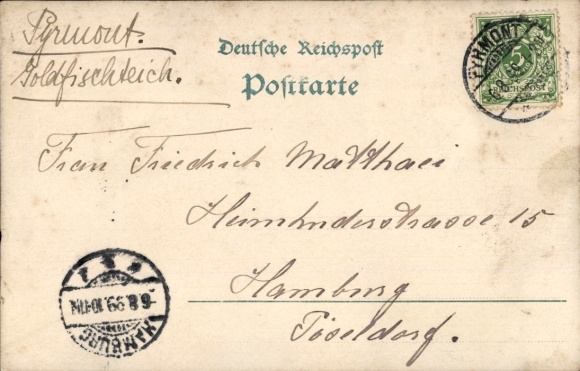 Pyrmont.
Goldfischteich.
Deutsche Reichspost
Postkarte
PYRMONT
5
REICHSPOST
Frau Friedrich Matthaei
Heimhuderstrasse 15
Hamburg
Pöseldorf.
6.8.99.10-11N
HAMBURG